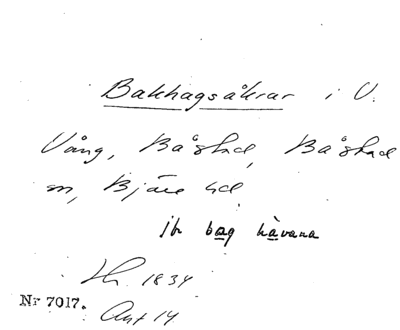 Bakhagsåkrar i V.
Vång, Båstad, Båstad
sn, Bjäre hd
jfr bag hàvana
1834
Nr 7017.
Akt 14